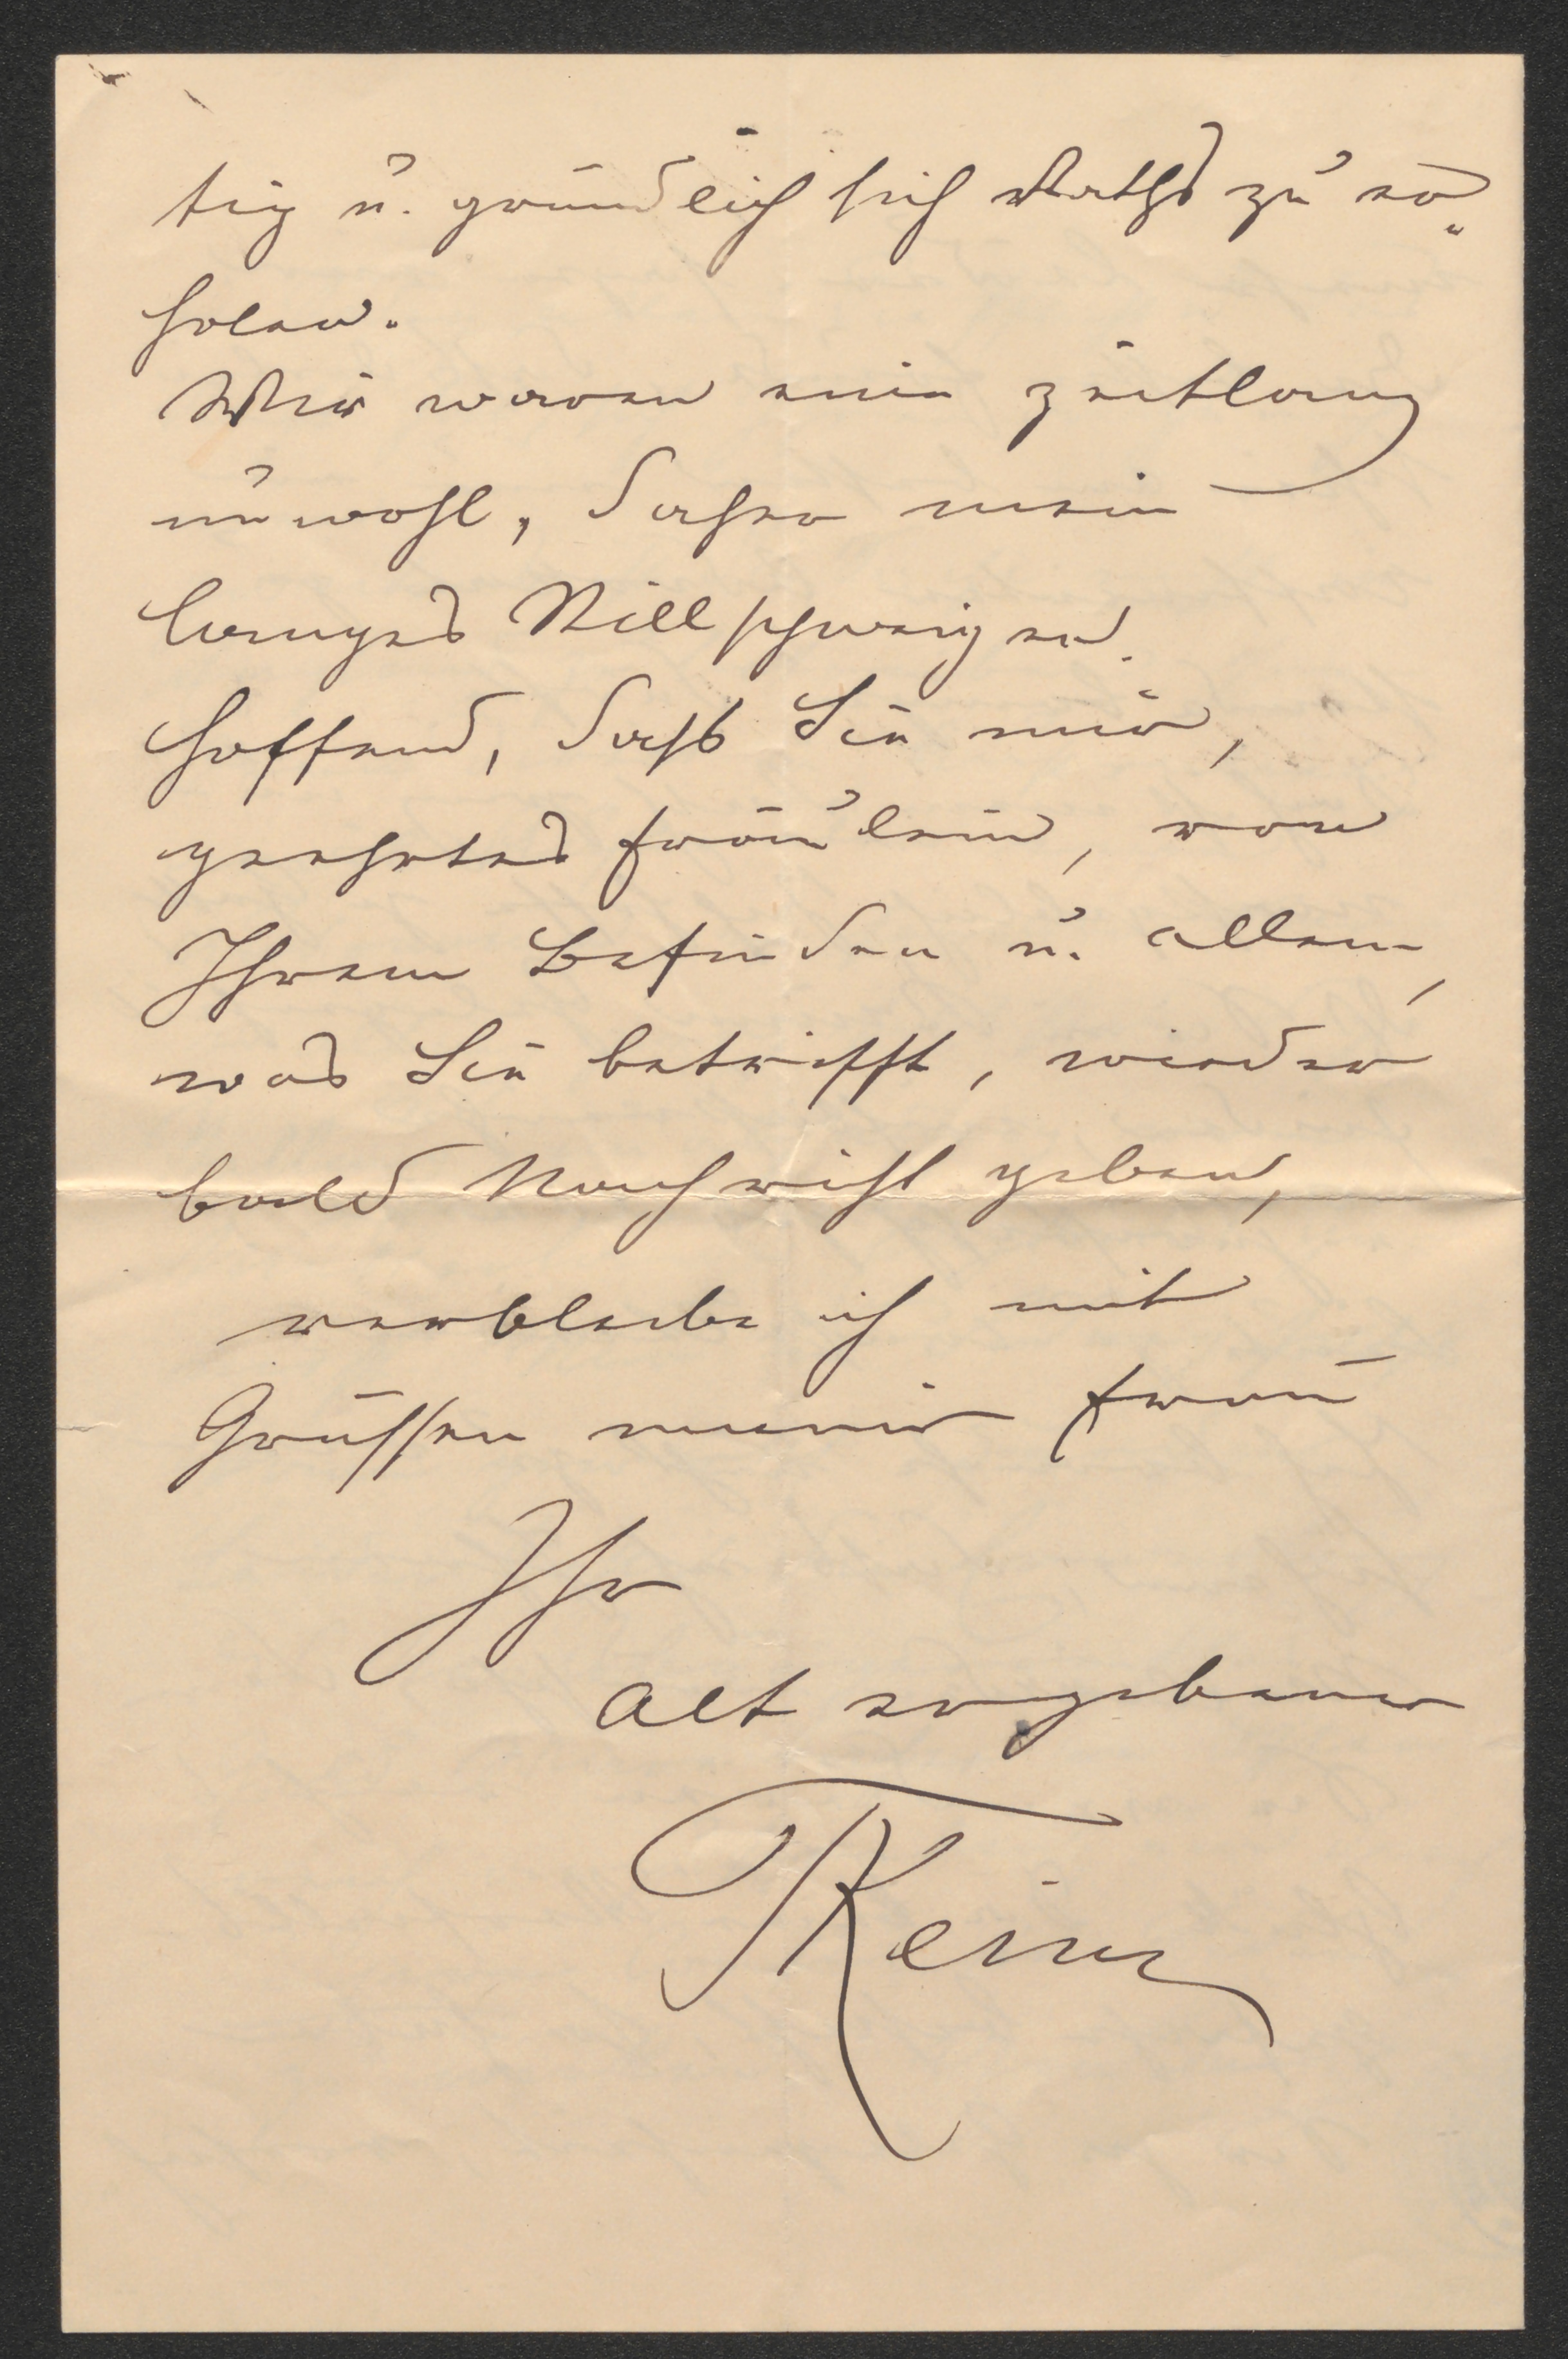 tig u. gründlich sich Raths zu er-
holen.
Wir waren eine zeitlang
unwohl, daher mein
langes Stillschweigen.
Hoffend, daß Sie mir,
geehrtes Fräulein, von
Ihrem Befinden u. allem,
was Sie betrifft, wieder
bald Nachricht geben,
verbleibe ich mit
Grüssen meiner Frau
Ihr
alt ergebener